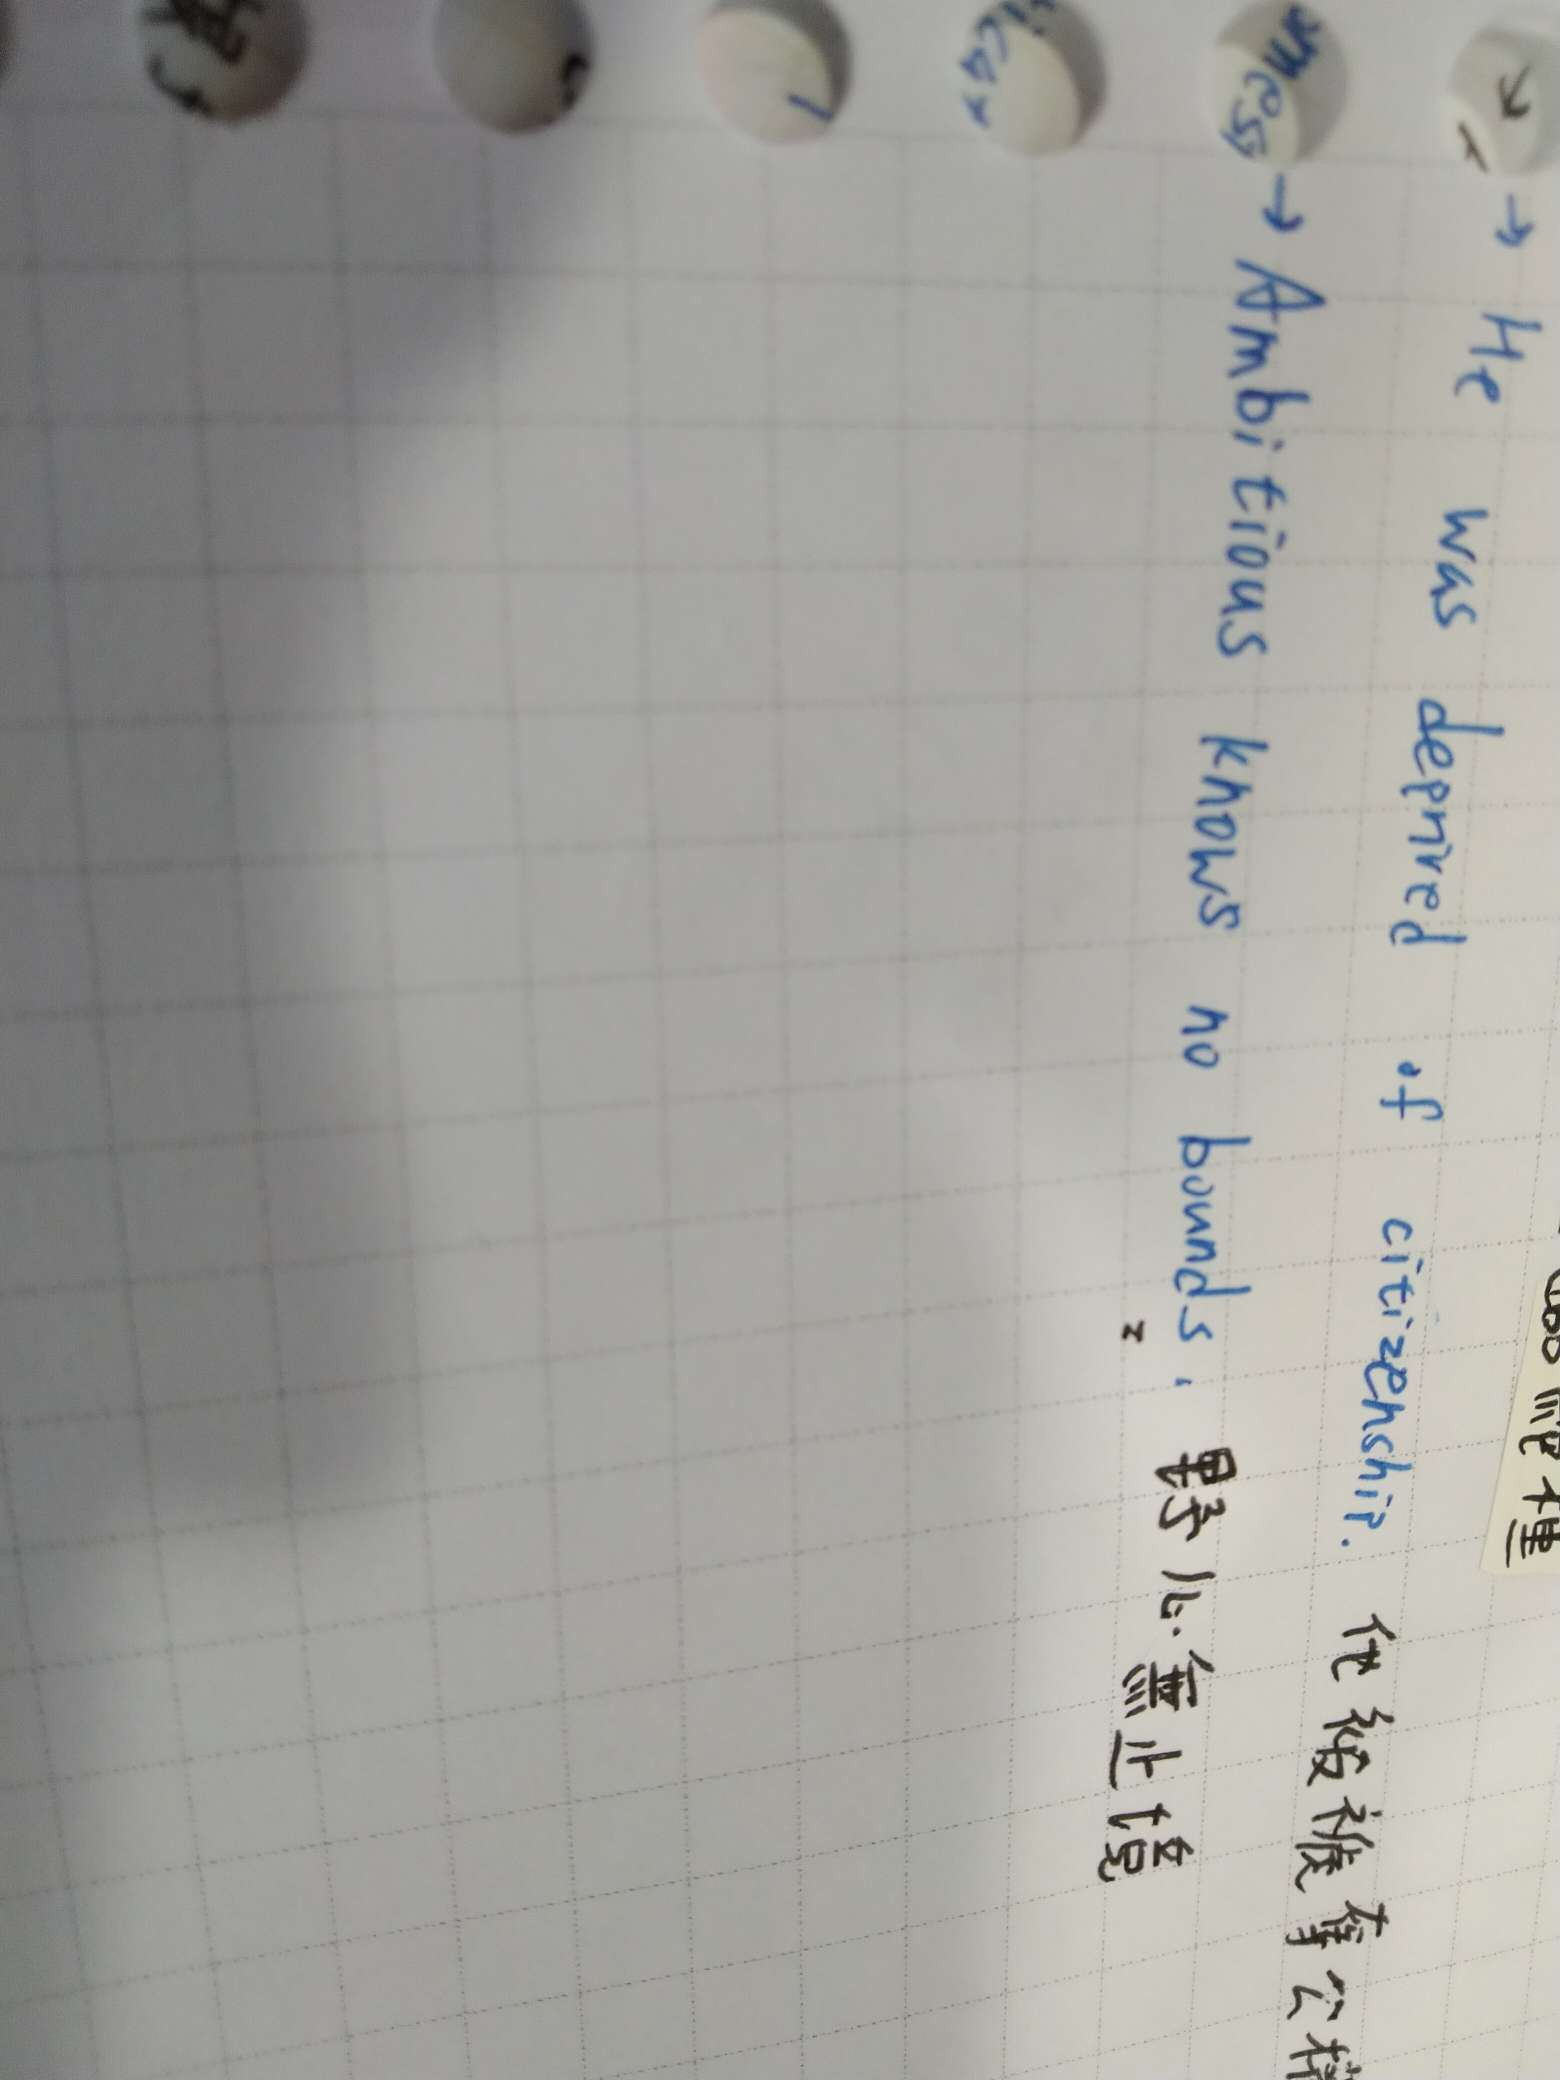 → He was deprived of citizenship. 他被褫奪公權
→ Ambitious knows no bounds. 野心無止境